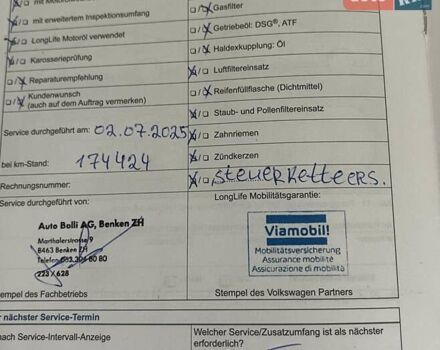 mit erweitertem Inspektionsumfang
LongLife Motoröl verwendet
Karosserieprüfung
Reparaturempfehlung
Kundenwunsch
(auch auf dem Auftrag vermerken)
Service durchgeführt am: 02.07.2025
bei km-Stand: 174424
Rechnungsnummer:
Service durchgeführt von:
Auto Bolli AG, Benken ZH
Marthalerstrasse 9
8463 Benken ZH
Telefon 052 304 80 80
223 X 628
Stempel des Fachbetriebs
Gasfilter
Getriebeöl: DSG®, ATF
Haldexkupplung: Öl
Luftfiltereinsatz
Reifenfüllflasche (Dichtmittel)
Staub- und Pollenfiltereinsatz
Zahnriemen
Zündkerzen
steuerketteers.
LongLife Mobilitätsgarantie:
Viamobil!
Mobilitätsversicherung
Assurance mobilité
Assicurazione di mobilità
Stempel des Volkswagen Partners
nächster Service-Termin
nach Service-Intervall-Anzeige
Welcher Service/Zusatzumfang ist als nächster
erforderlich?